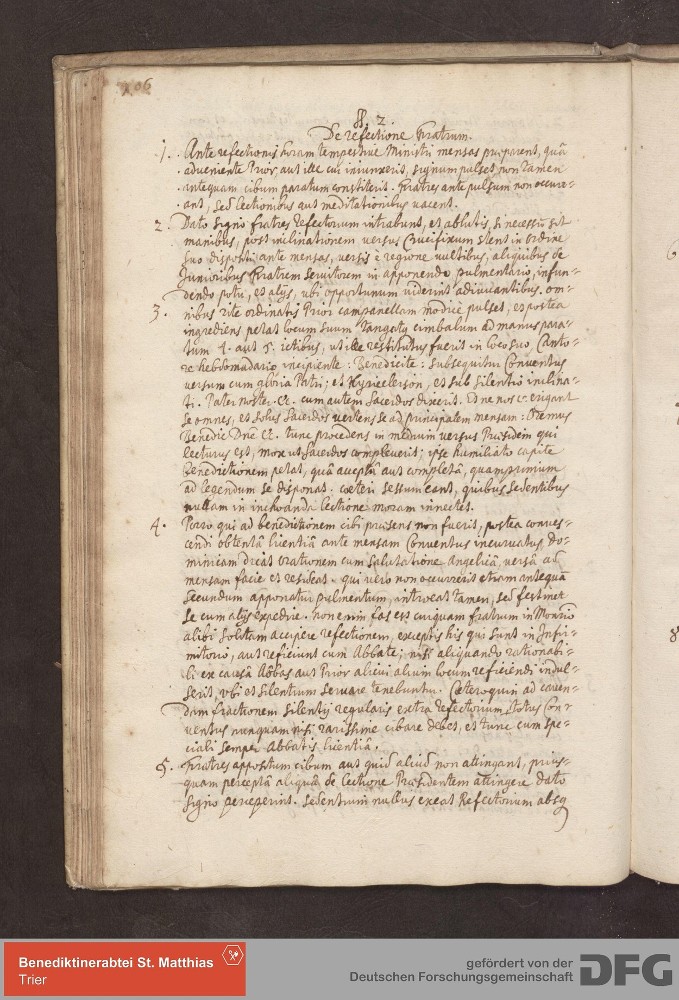 206
§. 2.
De refectione Fratrum.
1. Ante refectionis horam tempestive Ministri mensas præparent, quâ
adveniente Prior, aut ille cui iniunxerit, signum pulset, non tamen
antequam cibum paratum constiterit. Fratres ante pulsum non occurr-
ant, sed lectionibus aut meditationibus vacent.
2. Dato signo fratres Refectorium intrabunt, et ablutis, si necesse sit
manibus, post inclinationem versus Crucifixum stent in ordine
suo dispositi ante mensas, versis è regione vultibus, aliquibus de
Junioribus Fratrem servitorem in apponendo pulmentario, infun-
dendo potu, et alijs, ubi opportunum viderint adiuvantibus. om-
3. nibus rite ordinatis Prior campanellam modicè pulset, et postea
ingrediens petat locum suum tangatq cimbalum ad manus para-
tum 4. aut 5. ictibus, ut ille restitutus fuerit in loco suo, Canto-
re hebdomadario incipiente: Benedicite: subsequitur Conventus
versum cum gloria Patri; et Kyrieeleison, et sub silentio inclina-
ti. Pater noster. &c. cum autem Sacerdos dixerit. Et ne nos &c. erigant
se omnes, et solus Sacerdos vertens se ad principalem mensam: Oremus
Benedic Dne &c. tunc procedens in medium versus Præsidem qui
lecturus est, mox ut Sacerdos compleverit; ipse humiliato capite
Benedictionem petat, quâ acceptâ aut completâ, quamprimum
ad legendum se disponat. cæteri sessum eant, quibus sedentibus
nullam in inchoanda lectione moram innectet.
4. Porro qui ad benedictionem cibi præsens non fuerit, postea conves-
cendi obtentâ licentiâ ante mensam Conventus incurvatus, Do-
minicam dicat orationem cum salutatione Angelicâ, versâ ad
mensam facie et resideat. qui vero non occurrerit etiam antequã
secundum apponatur pulmentum, introeat tamen, sed festinet
se cum alijs expedire. non enim fas est cuiquam fratrum in Monrio
alibi solitam accipere refectionem, exceptis his qui sunt in Infir-
mitorio, aut reficiunt cum Abbate; nisi aliquando rationabi-
li ex causâ Abbas aut Prior alicui alium locum reficiendi indul-
serit, ubi et silentium servare tenebuntur. Cæteroquin ad caven-
dam fractionem silentij regularis extra refectorium totus Con-
ventus nunquam nisi rarissime cibare debet, et tunc cum spe-
ciali semper Abbatis licentiâ.
5. Fratres appositum cibum aut quid aliud non attingant, prius-
quam perceptâ aliquâ de lectione Præsidentem attingere dato
signo perceperint. sedentium nullus exeat Refectorium absq
Benediktinerabtei St. Matthias
Trier
gefördert von der
Deutschen Forschungsgemeinschaft
DFG